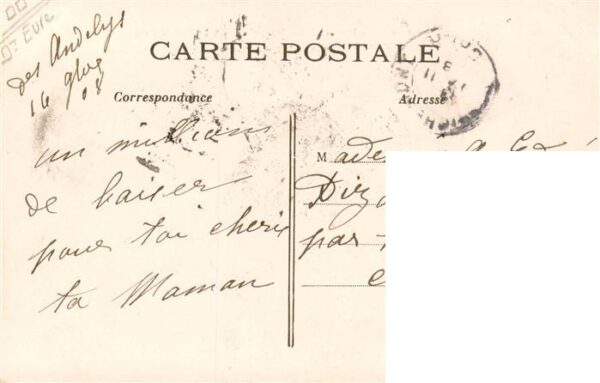 Dt Eure
des Andelys
16 9bre
08
CARTE POSTALE
Correspondance
Adresse
un million
de baiser
pour toi cheri
ta Maman
Made
Diz
par